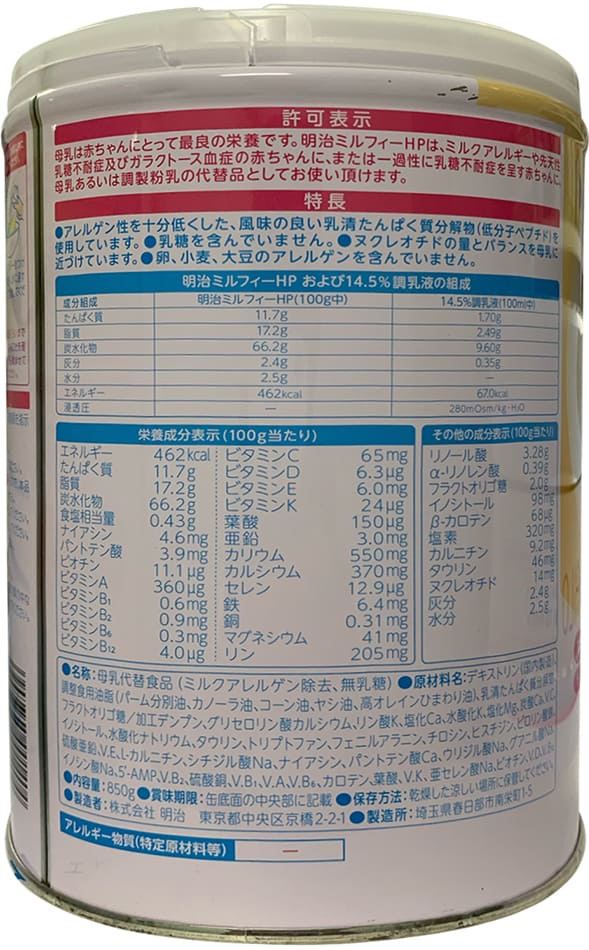 許可表示
母乳は赤ちゃんにとって最良の栄養です。明治ミルフィーHPは、ミルクアレルギーや先天性
乳糖不耐症及びガラクトース血症の赤ちゃんに、または一過性に乳糖不耐症を呈す赤ちゃんに、
母乳あるいは調製粉乳の代替品としてお使い頂けます。
特長
●アレルゲン性を十分低くした、風味の良い乳清たんぱく質分解物(低分子ペプチド)を
使用しています。●乳糖を含んでいません。●ヌクレオチドの量とバランスを母乳に
近づけています。●卵、小麦、大豆のアレルゲンを含んでいません。
明治ミルフィーHP および14.5%調乳液の組成
成分組成 明治ミルフィーHP(100g中) 14.5%調乳液(100ml中)
たんぱく質 11.7g 1.70g
脂質 17.2g 2.49g
炭水化物 66.2g 9.60g
灰分 2.4g 0.35g
水分 2.5g —
エネルギー 462kcal 67.0kcal
浸透圧 — 280mOsm/kg・H₂O
栄養成分表示(100g当たり)
エネルギー 462kcal
たんぱく質 11.7g
脂質 17.2g
炭水化物 66.2g
食塩相当量 0.43g
ナイアシン 4.6mg
パントテン酸 3.9mg
ビオチン 11.1μg
ビタミンA 360μg
ビタミンB₁ 0.6mg
ビタミンB₂ 0.9mg
ビタミンB₆ 0.3mg
ビタミンB₁₂ 4.0μg
ビタミンC 65mg
ビタミンD 6.3μg
ビタミンE 6.0mg
ビタミンK 24μg
葉酸 150μg
亜鉛 3.0mg
カリウム 550mg
カルシウム 370mg
セレン 12.9μg
鉄 6.4mg
銅 0.31mg
マグネシウム 41mg
リン 205mg
その他の成分表示(100g当たり)
リノール酸 3.28g
α-リノレン酸 0.39g
フラクトオリゴ糖 2.0g
イノシトール 98mg
β-カロテン 68μg
塩素 320mg
カルニチン 9.2mg
タウリン 46mg
ヌクレオチド 14mg
灰分 2.4g
水分 2.5g
●名称:母乳代替食品(ミルクアレルゲン除去、無乳糖)●原材料名:デキストリン(国内製造)、
調整食用油脂(パーム分別油、カノーラ油、コーン油、ヤシ油、高オレインひまわり油)、乳清たんぱく質分解物、
フラクトオリゴ糖/加工デンプン、グリセロリン酸カルシウム、リン酸K、塩化Ca、水酸化K、塩化Mg、炭酸Ca、V.C、
イノシトール、水酸化ナトリウム、タウリン、トリプトファン、フェニルアラニン、チロシン、ヒスチジン、ピロリン酸鉄、
硫酸亜鉛、V.E、L-カルニチン、シチジル酸Na、ナイアシン、パントテン酸Ca、ウリジル酸Na、グアニル酸Na、
イノシン酸Na、5'-AMP、V.B₂、硫酸銅、V.B₁、V.A、V.B₆、カロテン、葉酸、V.K、亜セレン酸Na、ビオチン、V.D、V.B₁₂
●内容量:850g●賞味期限:缶底面の中央部に記載●保存方法:乾燥した涼しい場所に保管してください。
●製造者:株式会社 明治 東京都中央区京橋2-2-1●製造所:埼玉県春日部市南栄町1-5
アレルギー物質(特定原材料等) —